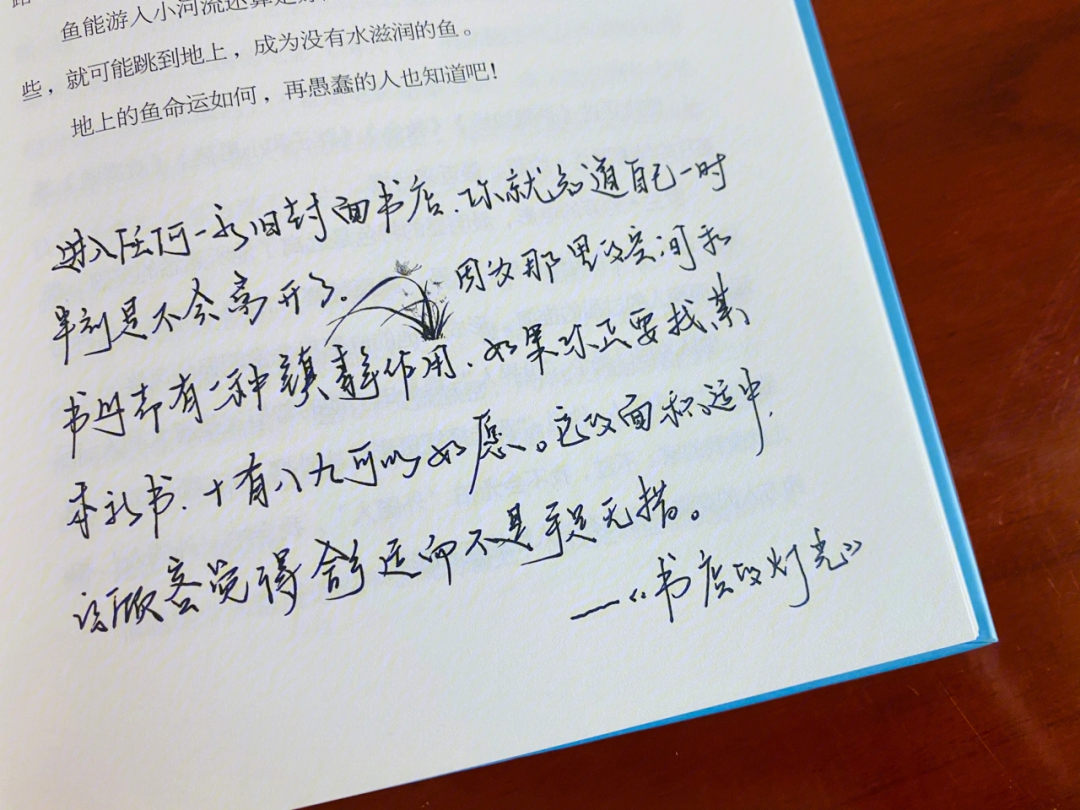 鱼能游入小河流还算是
些，就可能跳到地上，成为没有水滋润的鱼。
地上的鱼命运如何，再愚蠢的人也知道吧！
进入任何一家旧封面书店，你就知道自己一时
半刻是不会离开了。因为那里的空间和
书册都有一种镇静作用，如果你正要找某
本新书，十有八九可以如愿。它的面积适中，
让顾客觉得舒适而不是手足无措。
——《书店的灯光》